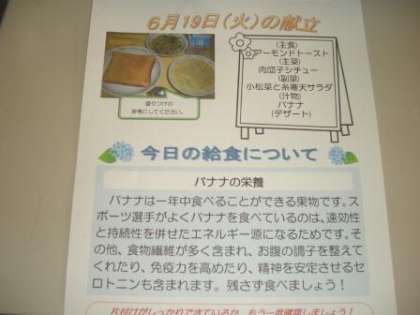 6月19日(火)の献立
(主食)
アーモンドトースト
(主菜)
肉団子シチュー
(副菜)
小松菜と糸寒天サラダ
(汁物)
バナナ
(デザート)
盛りつけの
参考にしてください。
今日の給食について
バナナの栄養
バナナは一年中食べることができる果物です。ス
ポーツ選手がよくバナナを食べているのは、速効性
と持続性を併せたエネルギー源になるためです。そ
の他、食物繊維が多く含まれ、お腹の調子を整えて
くれたり、免疫力を高めたり、精神を安定させるセ
ロトニンも含まれます。残さず食べましょう!
片付けがしっかりできているか、もう一度確認しましょう!